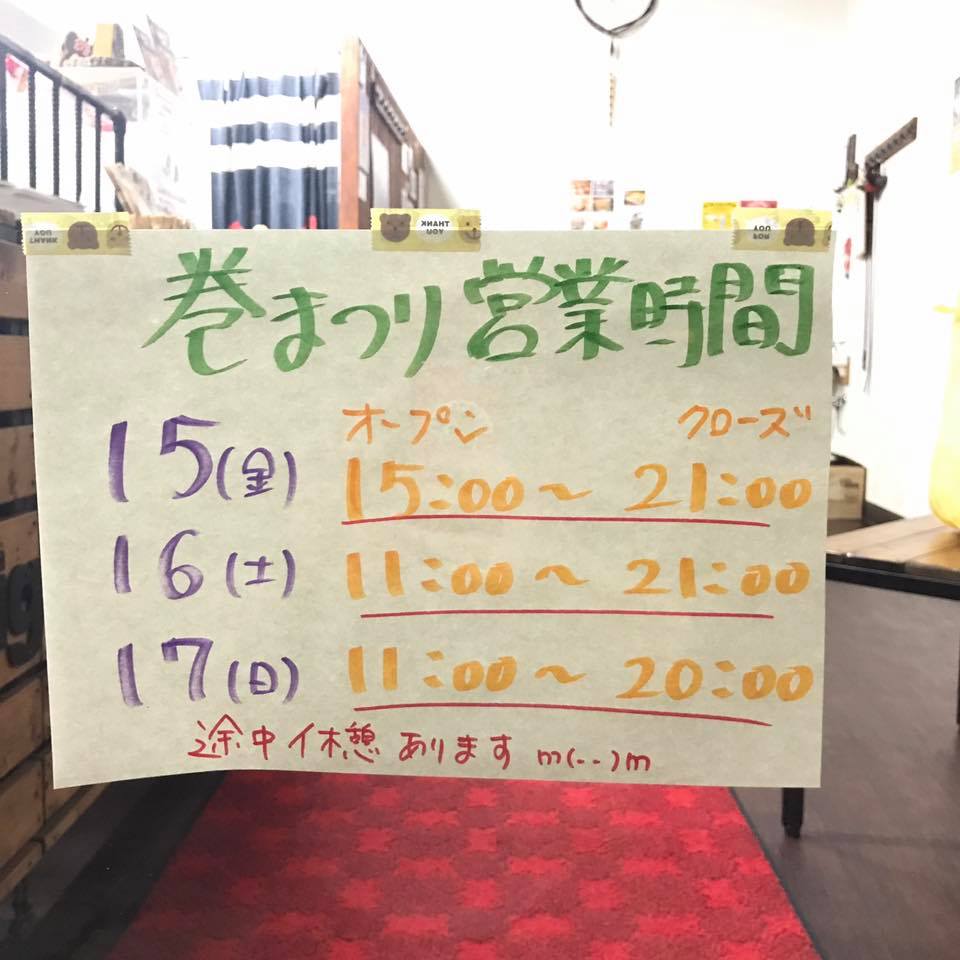 THANK YOU
THANK YOU
FOR YOU
巻まつり営業時間
オープン クローズ
15(金) 15:00～21:00
16(土) 11:00～21:00
17(日) 11:00～20:00
途中休憩あります m(--)m